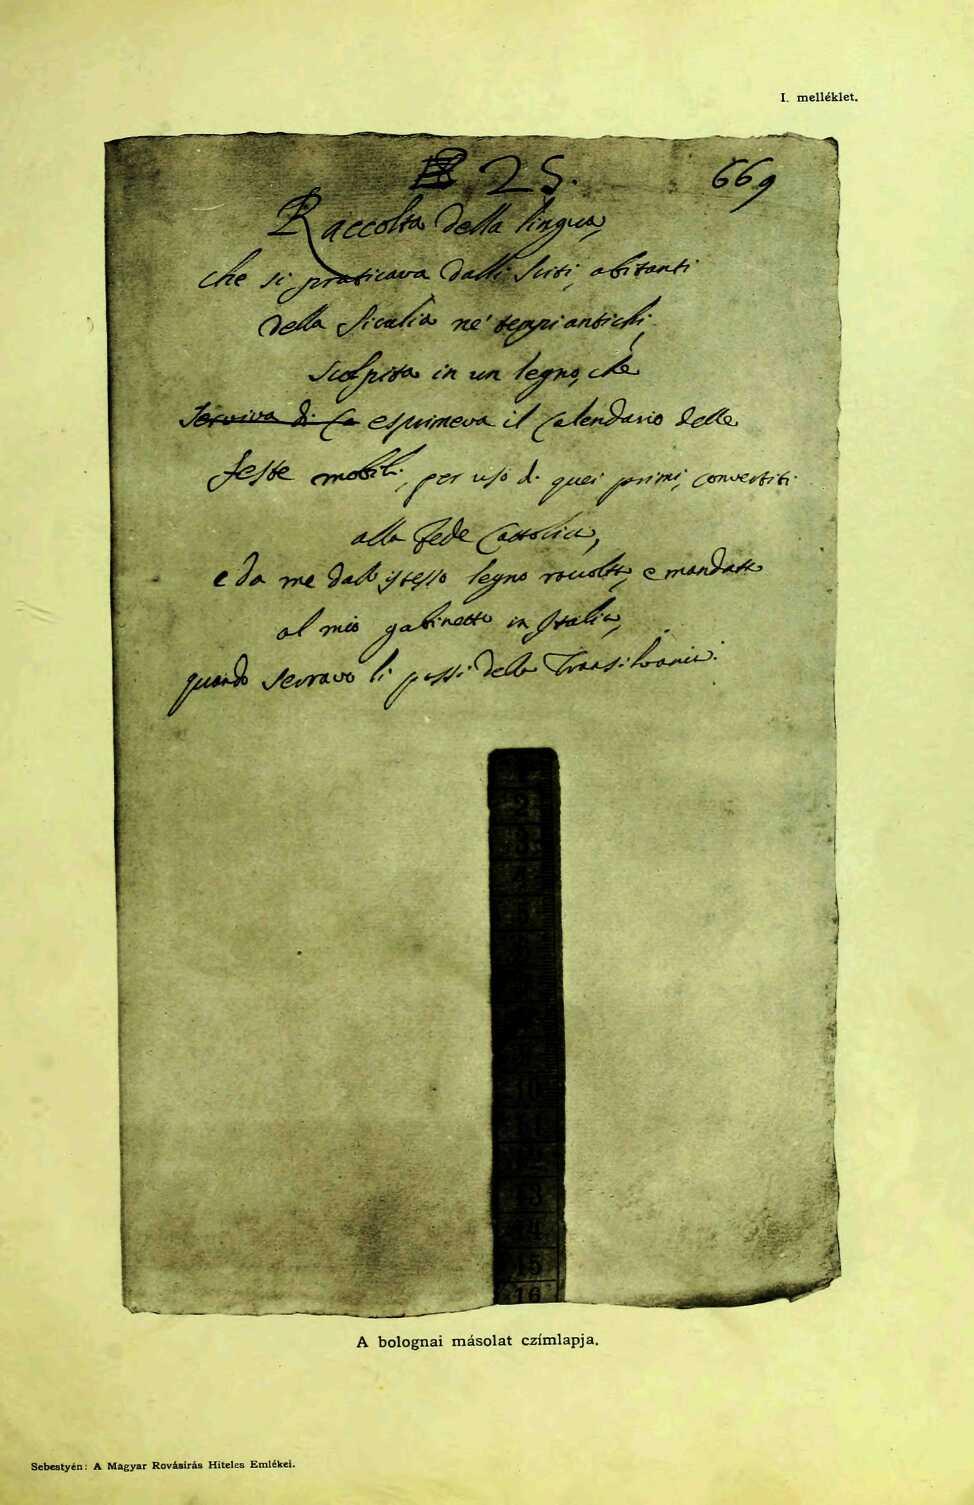 I. melléklet.
25. 669
Raccolta della lingua,
che si praticava dalli Sciti, abitanti
della Siculia ne' tempi antichi,
scolpita in un legno, che
serviva di Ca esprimeva il Calendario delle
feste mobili, per uso di quei primi, convertiti
alla Fede Cattolica,
e da me dall istesso legno raccolta, e mandata
al mio gabinetto in Italia,
quando serravo li passi della Transilvania.
2
3
4
10
11
13
14
15
16
A bolognai másolat czímlapja.
Sebestyén: A Magyar Rovásirás Hiteles Emlékei.